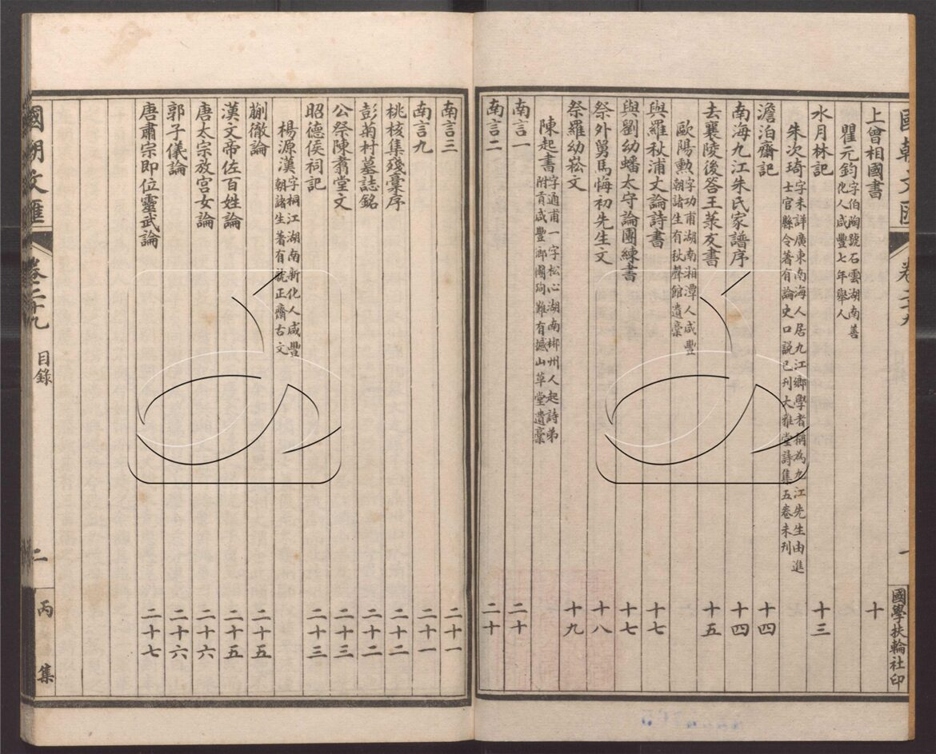 國朝文匯 卷二十九 一 國學扶輪社印
上曾相國書 十
瞿元鈞 字伯陶號石雲湖南善
化人咸豐七年舉人
水月林記 十三
朱次琦 字未詳廣東南海人居九江鄉學者稱為九江先生由進
士官縣令著有論史口說已刊大雅堂詩集五卷未刊
澹泊齋記 十四
南海九江朱氏家譜序 十四
去襄陵後答王菉友書 十五
歐陽勲 字功甫湖南湘潭人咸豐
朝諸生有秋聲館遺稾
與羅秋浦丈論詩書 十七
與劉幼蟠太守論團練書 十七
祭外舅馬悔初先生文 十八
祭羅幼崧文 十九
陳起書 字通甫一字松心湖南郴州人起詩弟
附貢咸豐 有撼山草堂遺稾
南言一 二十
南言二 二十
南言三 二十一
南言九 二十一
桃核集殘稾序 二十二
彭菊村墓誌銘 二十二
公祭陳翥堂文 二十三
昭德侯祠記 二十三
楊源漢 字桐江湖南新化人咸豐
朝諸生著有 正齋古文
蒯徹論 二十五
漢文帝佐百姓論 二十五
唐太宗放宮女論 二十六
郭子儀論 二十六
唐肅宗即位靈武論 二十七
國朝文匯 卷二十九 目錄 二 丙集